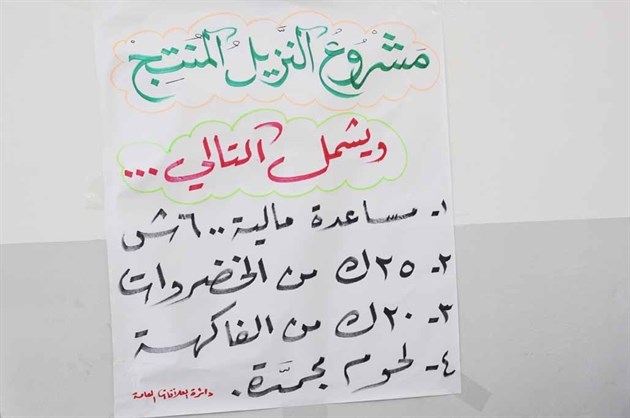 مشروعُ النزيل المُنتِج
ويشمل التالي...
١- مساعدة مالية ٦٠٠ ش
٢- ٢٥ ك من الخضروات
٣- ٢٠ ك من الفاكهة
٤- لحوم مجمَّدة.
دائرة العلاقات العامة